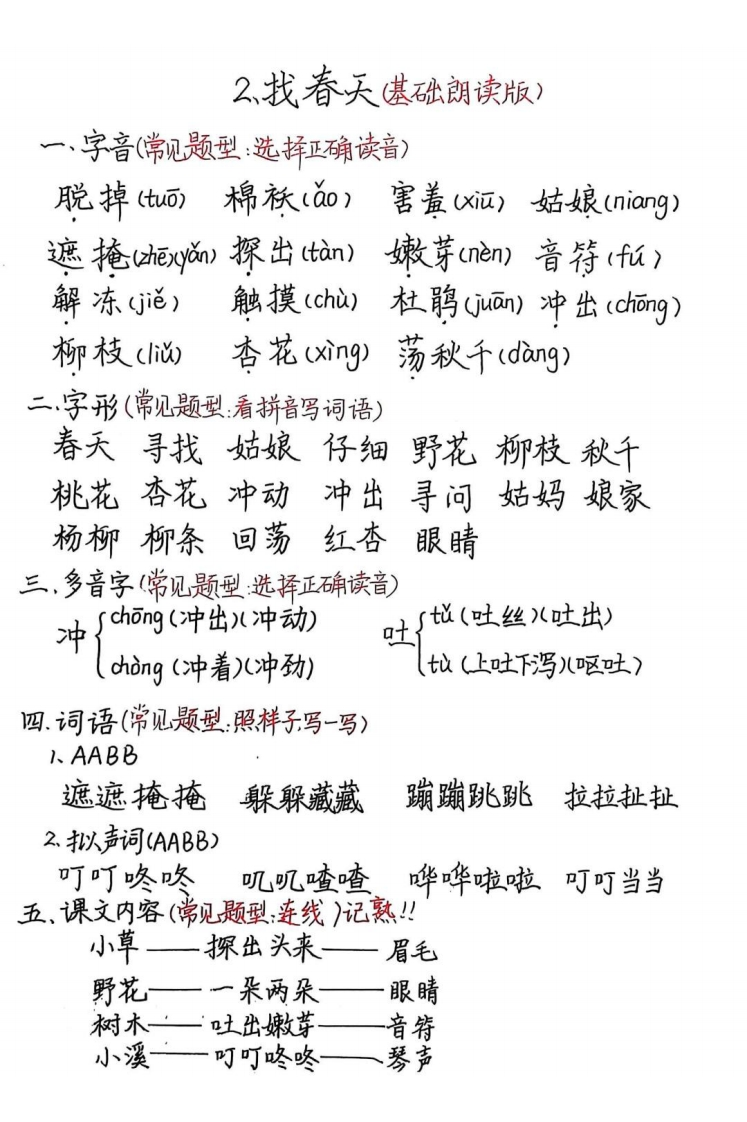 2、找春天(基础朗读版)
一、字音(常见题型:选择正确读音)
脱掉(tuō) 棉袄(ǎo) 害羞(xiū) 姑娘(niang)
遮掩(zhē)(yǎn) 探出(tàn) 嫩芽(nèn) 音符(fú)
解冻(jiě) 触摸(chù) 杜鹃(juān) 冲出(chōng)
柳枝(liǔ) 杏花(xìng) 荡秋千(dàng)
二、字形(常见题型:看拼音写词语)
春天 寻找 姑娘 仔细 野花 柳枝 秋千
桃花 杏花 冲动 冲出 寻问 姑妈 娘家
杨柳 柳条 回荡 红杏 眼睛
三、多音字(常见题型:选择正确读音)
冲{chōng(冲出)(冲动) 吐{tǔ(吐丝)(吐出)
chòng(冲着)(冲劲) tù(上吐下泻)(呕吐)
四、词语(常见题型:照样子,写一写)
1、AABB
遮遮掩掩 躲躲藏藏 蹦蹦跳跳 拉拉扯扯
2、拟声词(AABB)
叮叮咚咚 叽叽喳喳 哗哗啦啦 叮叮当当
五、课文内容(常见题型:连线)记熟!!
小草——探出头来——眉毛
野花——一朵两朵——眼睛
树木——吐出嫩芽——音符
小溪——叮叮咚咚——琴声